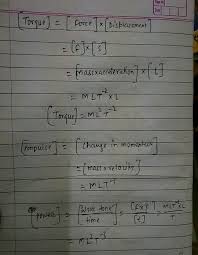 [Torque] = [Force] x [Displacement]
= [F] x [S]
= [mass x acceleration] x [L]
= MLT⁻² x L
[Torque] = ML²T⁻²
[Impulse] = [Change in momentum]
= [mass x velocity]
= MLT⁻¹
[Power] = [Work done / time] = [F x s] / [t] = MLT⁻² x L / T
= ML²T⁻³